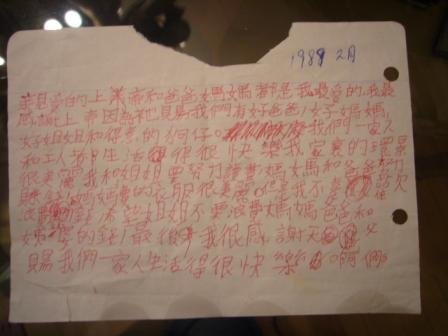 1989 2月
親愛的上業帝和爸爸媽媽都是我最愛的,我最
感謝上帝因為祂賜我們有好爸爸,好媽媽,
好姐姐和得意的狗仔。我們一家人
和工人都生活得很快樂我家裏的
很美麗我和姐姐要努力讀書媽媽和爸爸
賺錢媽媽的衣服很美麗但是我不要
的錢希望姐姐不要浪費媽媽爸爸和
婆的錢!最後我很感謝天父
賜我們一家人生活得很快樂啊們。